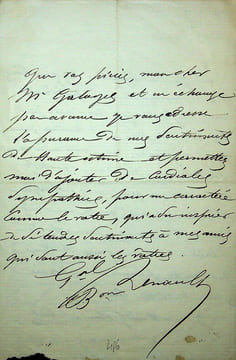 Que vos prières, mon cher
Mr Galuzes et en échange
par avance je vous adresse
l'assurance de mes sentiments
de haute estime et permettez
moi d'ajouter de cordiales
sympathies, pour un caractère
comme le votre, qui a su inspirer
de si tendres sentiments à mes amis
qui sont aussi les votres.
Gal
Bon Renault